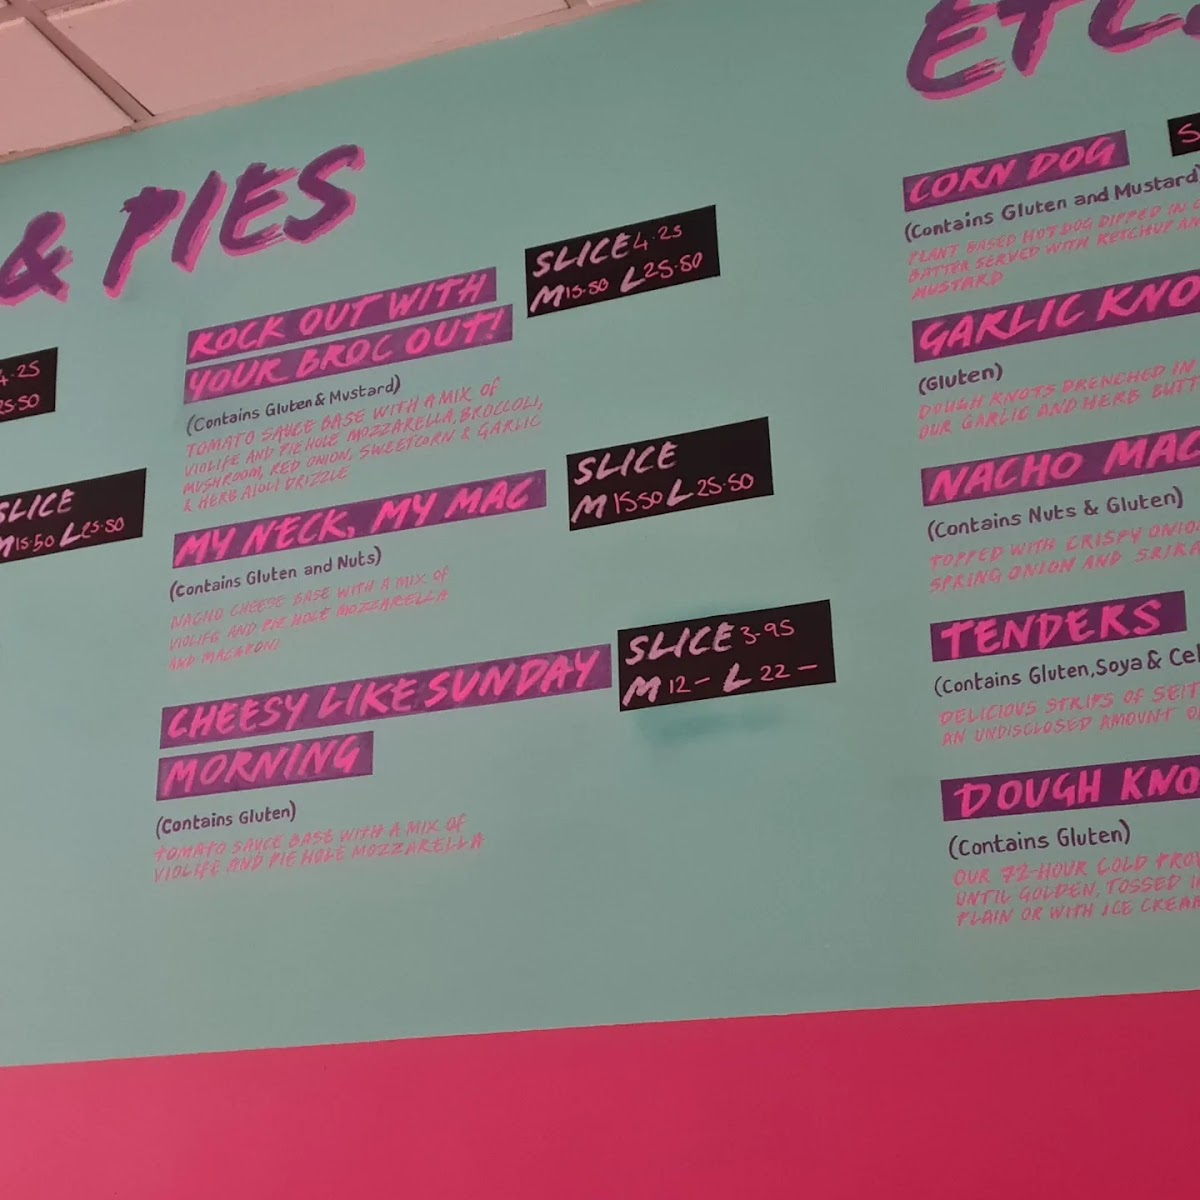 & PIES
4.25
25.50
SLICE
M15.50 L25.50
ROCK OUT WITH
YOUR BROC OUT!
SLICE 4.25
M15.50 L25.50
(Contains Gluten & Mustard)
TOMATO SAUCE BASE WITH A MIX OF
VIOLIFE AND PIE HOLE MOZZARELLA, BROCCOLI,
MUSHROOM, RED ONION, SWEETCORN & GARLIC
& HERB AIOLI DRIZZLE
MY NECK, MY MAC
SLICE
M 15.50 L 25.50
(Contains Gluten and Nuts)
NACHO CHEESE BASE WITH A MIX OF
VIOLIFE AND PIE HOLE MOZZARELLA
AND MACARONI
CHEESY LIKE SUNDAY
MORNING
SLICE 3.95
M 12 – L 22 –
(Contains Gluten)
TOMATO SAUCE BASE WITH A MIX OF
VIOLIFE AND PIE HOLE MOZZARELLA
ETC
CORN DOG
S
(Contains Gluten and Mustard)
PLANT BASED HOT DOG DIPPED IN
BATTER SERVED WITH KETCHUP AN
MUSTARD
GARLIC KNO
(Gluten)
DOUGH KNOTS DRENCHED IN
OUR GARLIC AND HERB BUTT
NACHO MAC
(Contains Nuts & Gluten)
TOPPED WITH CRISPY ONIO
SPRING ONION AND SRIRA
TENDERS
(Contains Gluten, Soya & Cel
DELICIOUS STRIPS OF SEIT
AN UNDISCLOSED AMOUNT O
DOUGH KNO
(Contains Gluten)
OUR 72-HOUR COLD PROV
UNTIL GOLDEN, TOSSED I
PLAIN OR WITH ICE CREA